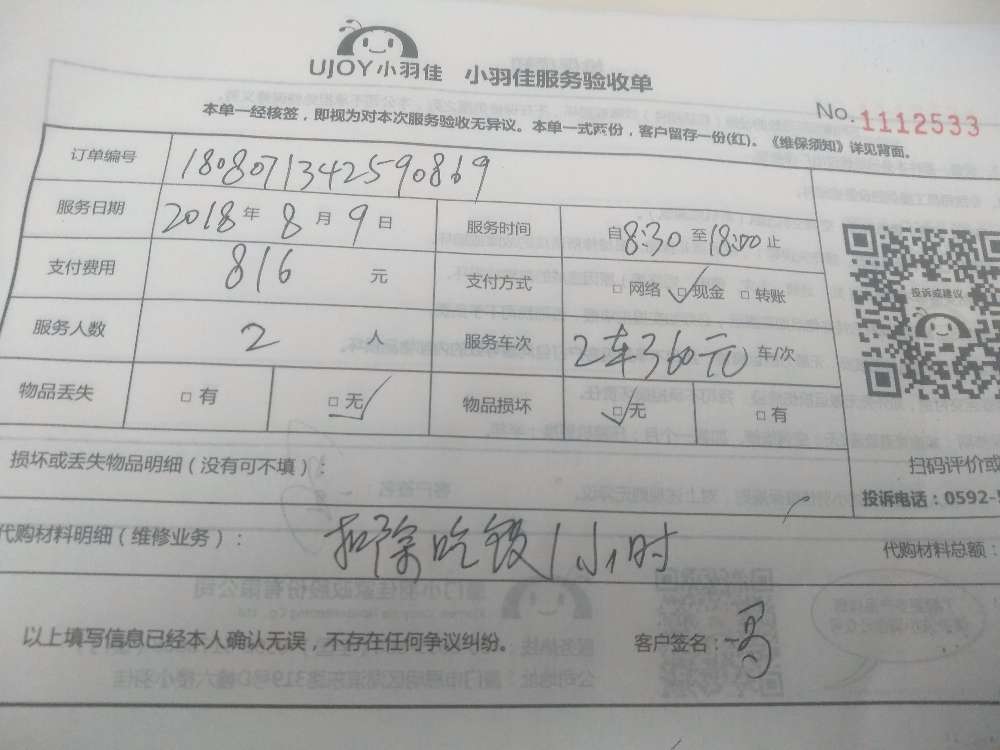 UJOY小羽佳 小羽佳服务验收单
No. 1112533
本单一经核签，即视为对本次服务验收无异议。本单一式两份，客户留存一份(红)。《维保须知》详见背面。
订单编号 1808071342590869
服务日期 2018年8月9日 服务时间 自8:30至18:00止
支付费用 816元 支付方式 □网络 ☑现金 □转账
投诉或建议
服务人数 2人 服务车次 2车360元 车/次
物品丢失 □有 ☑无 物品损坏 ☑无 □有
损坏或丢失物品明细（没有可不填）：
扫码评价或
投诉电话：0592-
代购材料明细（维修业务）： 扣除吃饭1小时 代购材料总额：
以上填写信息已经本人确认无误，不存在任何争议纠纷。 客户签名：